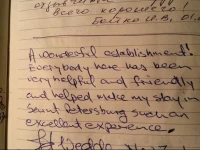 Всего хорошего!
Бойко И.В.
A wonderful establishment!
Everybody here has been
very helpful and friendly
and helped make my stay in
Saint Petersburg such an
excellent experience.